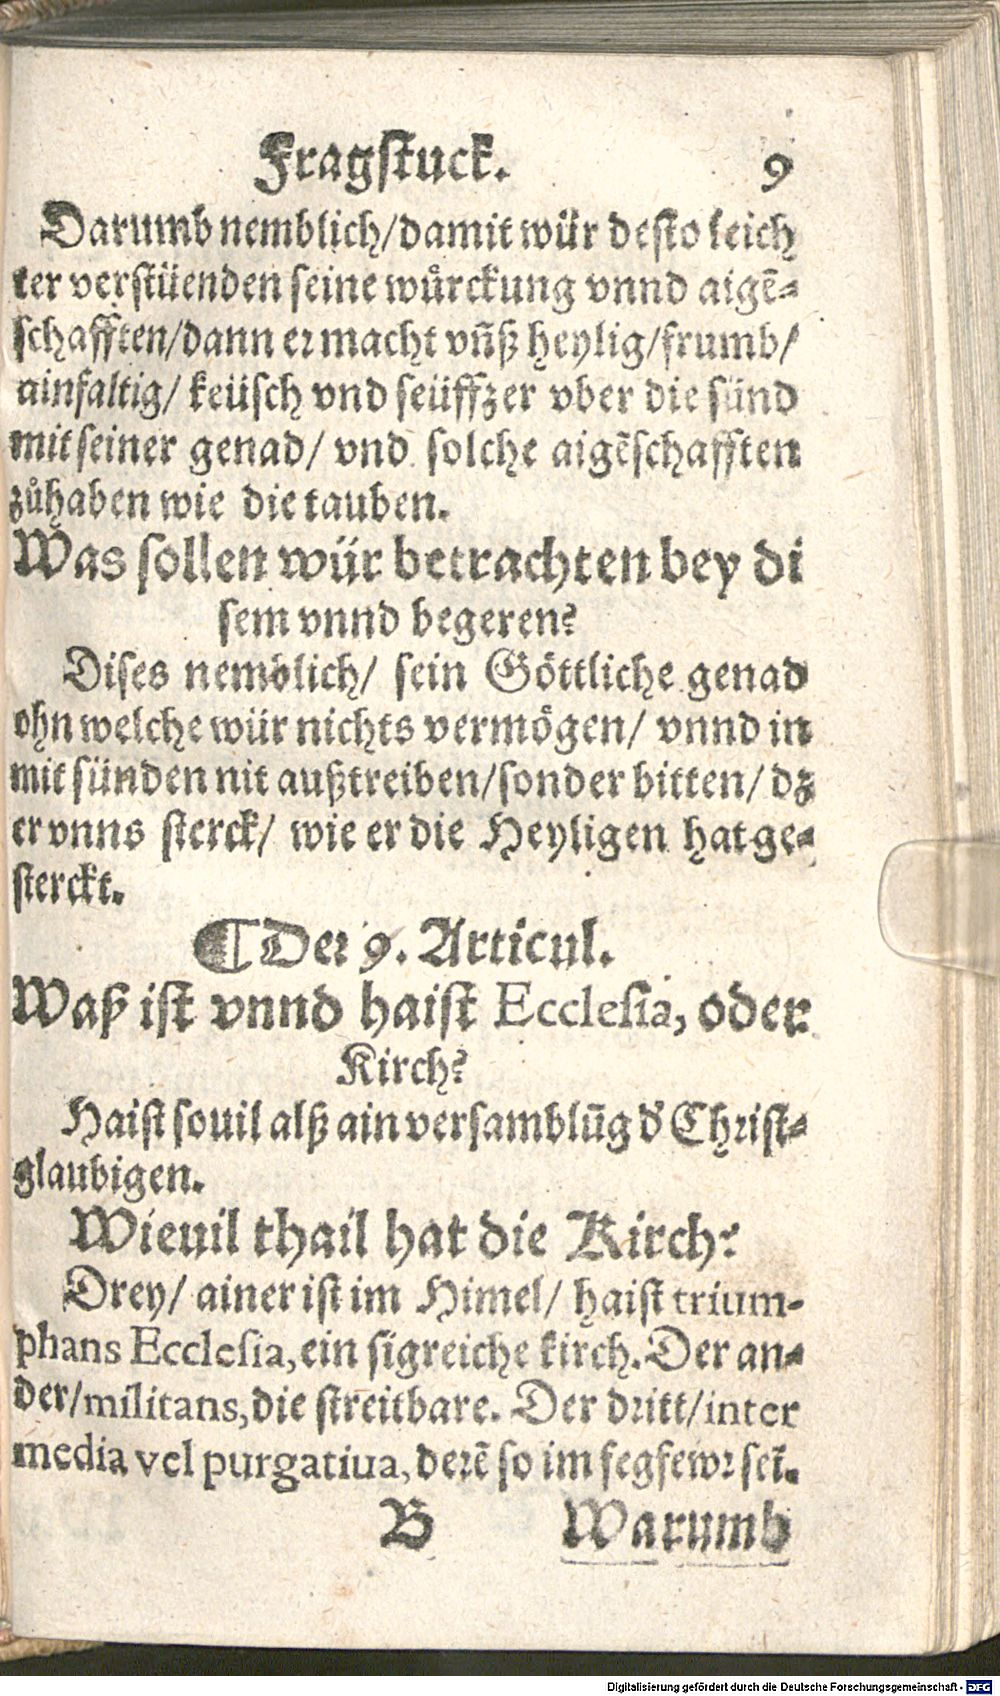 Fragstuck. 9
Darumb nemblich/damit wür desto leich
ter verstüenden seine wůrckung vnnd aigẽ-
schafften/dann er macht vñß heylig/frumb/
ainfaltig/ keüsch vnd seüffzer vber die sünd
mit seiner genad/ vnd solche aigẽschafften
zůhaben wie die tauben.
Was sollen wür betrachten bey di
sem vnnd begeren?
Dises nemblich/ sein Göttliche genad
ohn welche wür nichts vermögen/ vnnd in
mit sünden nit außtreiben/sonder bitten/ dz
er vnns sterck/ wie er die Heyligen hat ge-
sterckt.
¶ Der 9. Articul.
Waß ist vnnd haist Ecclesia, oder
Kirch?
Haist souil alß ain versamblũg d' Christ-
glaubigen.
Wieuil thail hat die Kirch?
Drey/ ainer ist im Himel/ haist trium-
phans Ecclesia, ein sigreiche kirch. Der an-
der/militans, die streitbare. Der dritt/inter
media vel purgatiua, derẽ so im fegfewr seĩ.
B Warumb
Digitalisierung gefördert durch die Deutsche Forschungsgemeinschaft - DFG